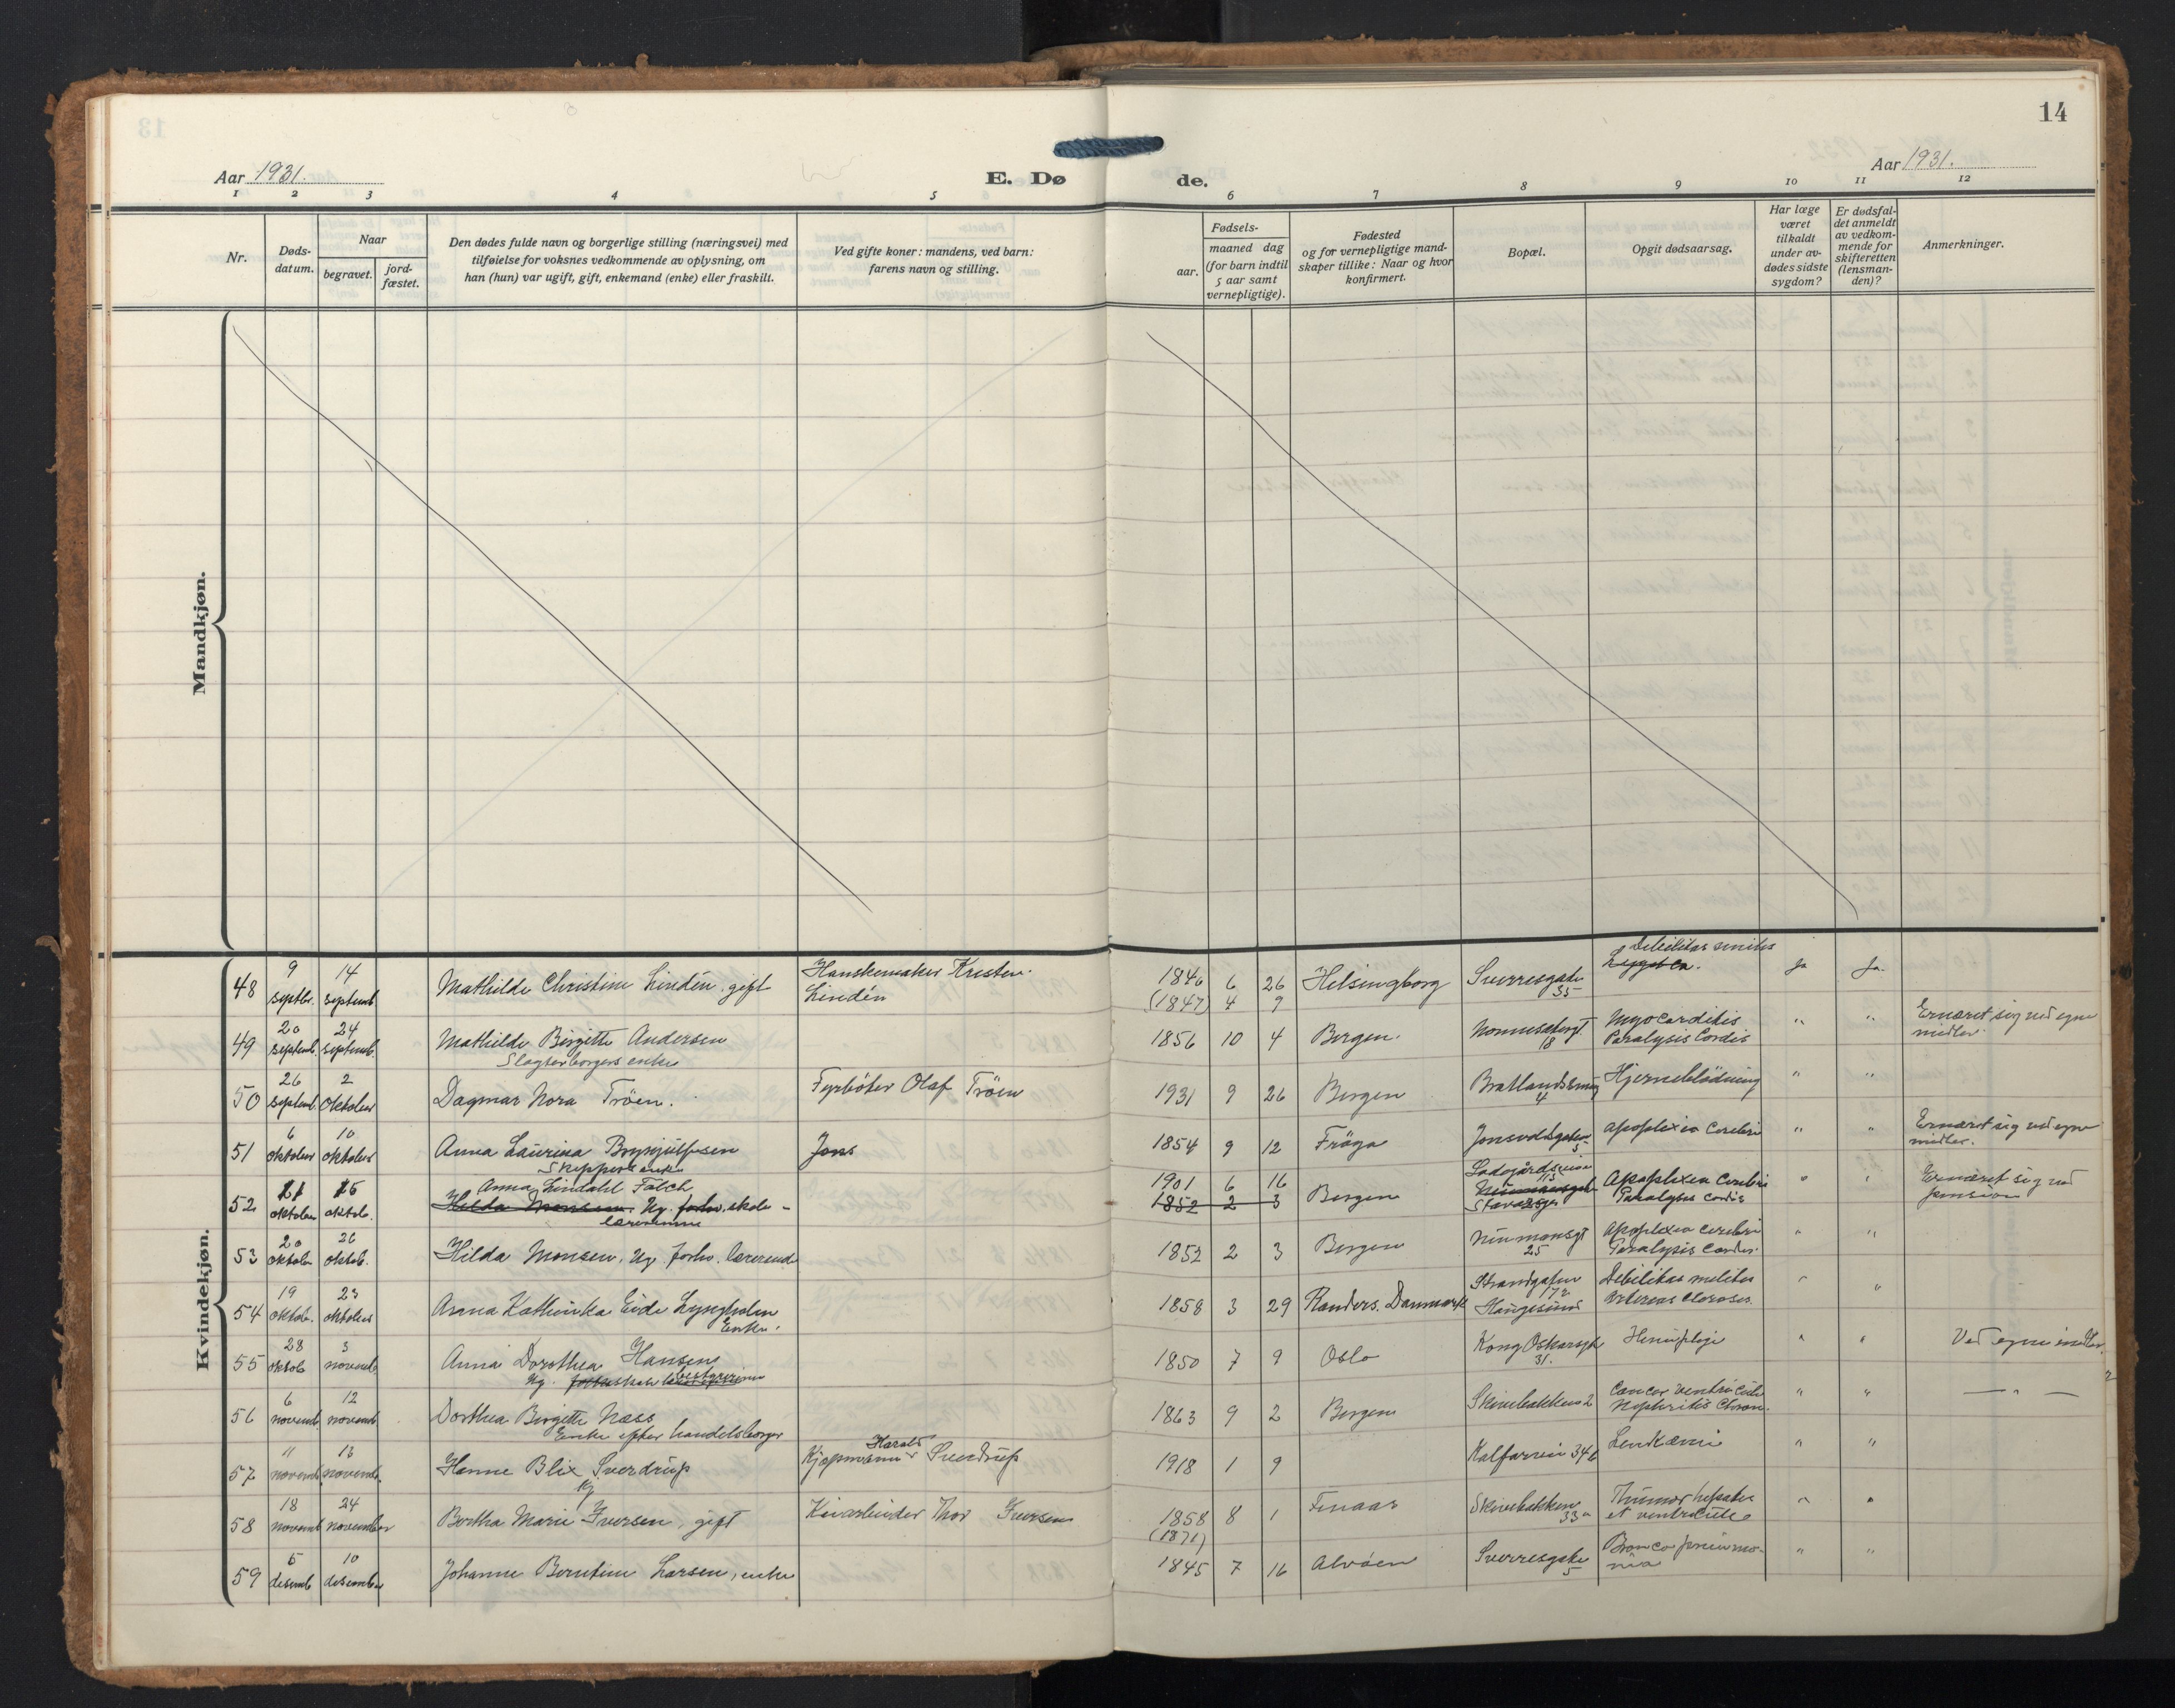 14
Aar 1931.
E. Dø
de.
Aar 1931.
1 2 3 4 5 6 7 8 9 10 11 12
Nr.
Døds-
datum.
Naar
begravet.
jord-
fæstet.
Den dødes fulde navn og borgerlige stilling (næringsvei) med
tilføielse for voksnes vedkommende av oplysning, om
han (hun) var ugift, gift, enkemand (enke) eller fraskilt.
Ved gifte koner: mandens, ved barn:
farens navn og stilling.
Fødsels-
aar.
maaned dag
(for barn indtil
5 aar samt
vernepligtige).
Fødested
og for vernepligtige mand-
skaper tillike: Naar og hvor
konfirmert.
Bopæl.
Opgit dødsaarsag.
Har læge
været
tilkaldt
under av-
dødes sidste
sygdom?
Er dødsfal-
det anmeldt
av vedkom-
mende for
skifteretten
(lensman-
den)?
Anmerkninger.
Mandkjøn.
Kvindekjøn.
48
9 septbr.
14 septemb
Mathilde Christine Lindén. gift
Hanskemaker Kresten
Lindén
1846 6 26
(1847) 4 9
Helsingborg
Sverresgate
35
Debilitas senilis
ja
ja.
49
20 septemb.
24 septemb.
Mathilde Birgitte Andersen
Slagterborgers enke
1856 10 4
Bergen.
Nonnesetergt
18
Myocarditis
Paralysis Cordis
" "
Ernæret sig ved egne
midler.
50
26 septemb.
2 oktober
Dagmar Nora Tröen.
Fyrböter Olaf Tröen
1931 9 26
Bergen
4
Hjerneblödning
" "
51
6 oktober
10 oktober
Anna Laurina Brynjulfsen
Skippers enke
Jens
1854 9 12
Fröya
Apoplexia Cerebri
" "
Ernæret sig ved egne
midler.
52
oktober
15 oktob.
Anna Lindahl Falch
Hilda Monsen. Ug. forhv. skole-
lærerinne
1901 6 16
1852 2 3
Bergen
Apoplexia Cerebri
Paralysis Cordis
" "
Ernæret sig ved
pension
53
20 oktober
26 oktob.
Hilda Monsen. Ug. forhv. lærerinde
1852 2 3
Bergen
Neumansgt
25
Apoplexia cerebri
Paralysis Cordis.
" "
54
19 oktob.
23 oktober
Anna Kathinka Eide Lyngholm
Enke.
1858 3 29
Randers. Danmark
Strandgaten
172
Haugesund
Debilitas
" "
55
28 oktob
3 novemb.
Anna Dorothea Hansen
Ug.
bestyrerinne
1850 7 9
Oslo
Kong Oskarsgt
31.
Hemiplegi
" "
Ved egne midler.
56
6 novemb.
12 novemb
Dorthea Birgitte Næss
Enke efter handelsborger
1863 9 2
Bergen
Skivebakken 2
Cancer Ventriculi
Nephritis Chron.
" "
— " —
57
" novemb
13 novemb.
Hanne Blix Sverdrup
Kjøpmann Harald Sverdrup
1918 1 9
Kalfarvei 34b
Leukæmi
" "
58
18 novemb
24 november
Bertha Marie Iversen, gift
Thor Iversen
1858 8 1
(1871)
Skivebakken
33a
Thumor hepatis
et ventriculi
" "
59
5 desemb
10 desember
Johanne Berntine Larsen, enke
1845 7 16
Alvöen
Sverresgate
5
Bronco pneumo-
nia
" "